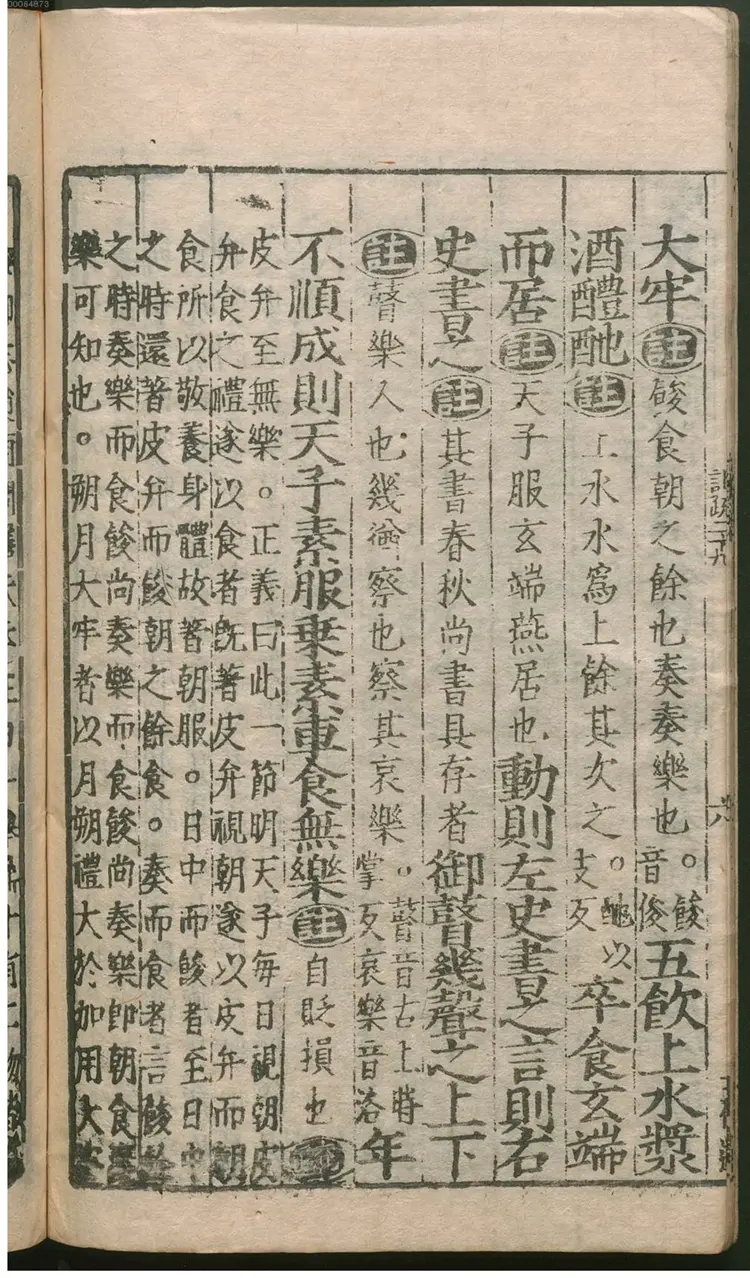 00064873
大牢註餕食朝之餘也奏奏樂也。餕音俊五飲上水漿
酒醴酏註上水水爲上餘其次之。酏以支反卒食玄端
而居註天子服玄端燕居也動則左史書之言則右
史書之註其書春秋尚書具存者御瞽幾聲之上下
註瞽樂人也幾猶察也察其哀樂。瞽音古上時掌反哀樂音洛年
不順成則天子素服乗素車食無樂註自貶損也
皮弁至無樂。正義曰此一節明天子每日視朝皮
弁食之禮遂以食者旣著皮弁視朝遂以皮弁而朝
食所以敬養身體故著朝服。日中而餕者至日中
之時還著皮弁而餕朝之餘食。奏而食者言餕
之時奏樂而食餕尚奏樂而食餕尚奏樂即朝食
樂可知也。朔月大牢者以月朔禮大於加用大牢